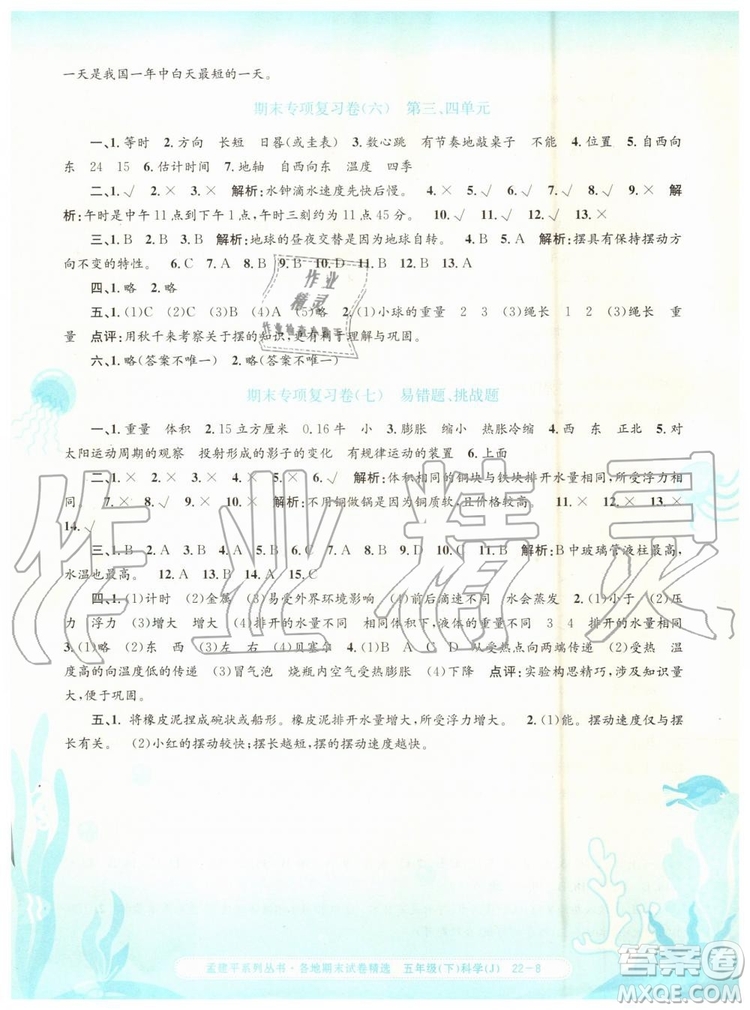 一天是我国一年中白天最短的一天。
期末专项复习卷(六) 第三、四单元
一、1. 等时 2. 方向 长短 日晷(或圭表) 3. 数心跳 有节奏地敲桌子 不能 4. 位置 5. 自西向
东 24 15 6. 估计时间 7. 地轴 自西向东 温度 四季
二、1. √ 2. × 3. × 解析:水钟滴水速度先快后慢。 4. × 5. √ 6. √ 7. √ 8. √ 9. × 解
析:午时是中午11点到下午1点,午时三刻约为11点45分。 10. √ 11. √ 12. √ 13. ×
三、1. B 2. B 3. B 解析:地球的昼夜交替是因为地球自转。 4. B 5. A 解析:摆具有保持摆动方
向不变的特性。 6. C 7. B 8. A 9. B 10. D 11. A 12. C
四、1. 略 2. 略
五、1. (1)C (2)D (3)B (4)A (5)略 2. (1)小球的重量 2 3 (2)3 (3)绳长 1 2 (3)绳长 重
量 点评:用秋千来考察关于摆的知识,更有助于理解与巩固。
六、1. 略(答案不唯一) 2. 略(答案不唯一)
期末专项复习卷(七) 易错题、挑战题
一、1. 重量 体积 2. 15立方厘米 0.16牛 3. 膨胀 缩小 热胀冷缩 4. 西 东 正北 5. 对
太阳运动周期的观察 投射形成的影子的变化 有规律运动的装置 6. 上面
二、1. × 2. × 3. × 4. √ 5. × 6. × 解析:体积相同的铜块与铁块排开水量相同,所受浮力
相同。 7. √ 8. × 9. × 10. × 解析:不用铜做锅是铜质软,且价格较高。 11. × 12. × 13. ×
14. √
三、1. B 2. A 3. B 4. A 5. A 6. C 7. B 8. C 9. C 10. A 11. B 解析:B中玻璃管液柱最高,水
温也最高。 12. A 13. A 14. C 15. A
四、1. (1)计时 (2)金属 (3)易受外界环境影响 (4)前后滴速不均 水会蒸发 2. (1)小于 (2)压
力 浮力 (3)增大 增大 (4)排开的水量不同 相同体积下,液体的重量不同 3. (1)8 4 (2)8 4
(3)大 (4)B 贝塞尔 4. (1)略 (2)3 4 (3)变大 变小 5. (1)受热点向两端传递 (2)受热 温
度高的向温度低的传递 (3)冒气泡 烧瓶内空气受热膨胀 (4)下降 点评:实验构思精巧,涉及知识量
大,便于巩固。
五、1. 将橡皮泥捏成碗状或船形。橡皮泥排开水量增大,所受浮力增大。 2. (1)能。摆动速度仅与摆
长有关。 (2)小红的摆动较快;摆长越短,摆动速度越快。
孟建平系列丛书·各地期末试卷精选 五年级(下)科学(J) 22-8
作业精灵